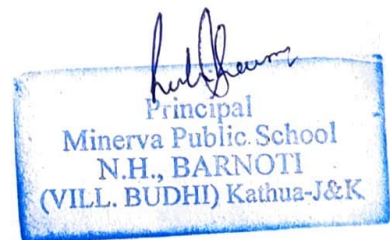 Principal
Minerva Public School
N.H., BARNOTI
(VILL. BUDHI) Kathua-J&K